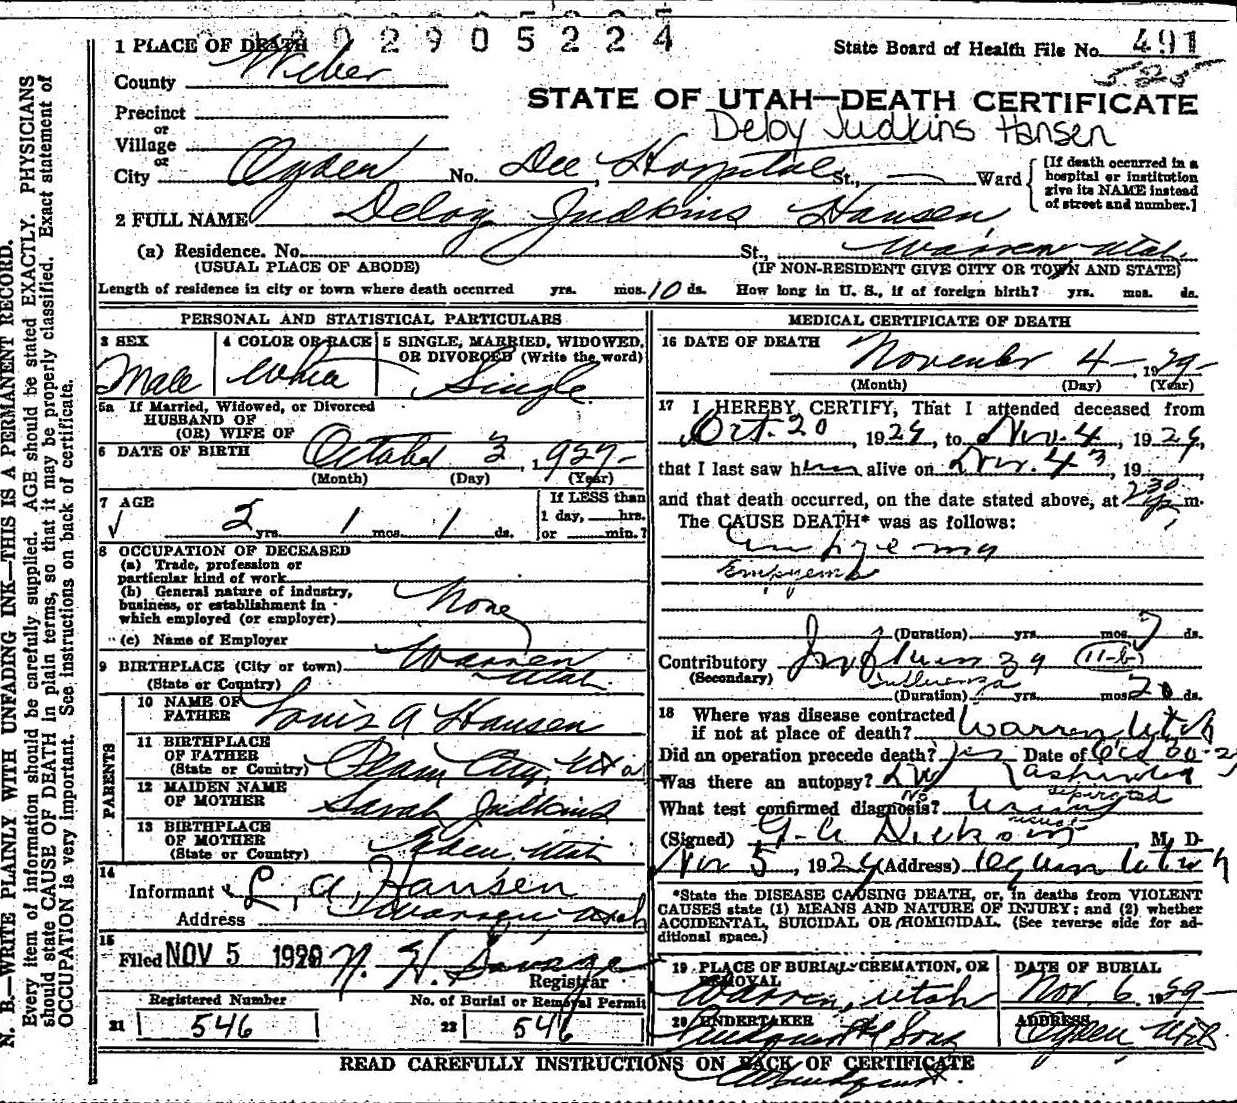 2905224
1 PLACE OF DEATH
State Board of Health File No. 491
525
County Weber
STATE OF UTAH—DEATH CERTIFICATE
Precinct
or
Deloy Judkins Hansen
Village
or
City Ogden No. Dee Hospital St., Ward
[If death occurred in a hospital or institution give its NAME instead of street and number.]
2 FULL NAME Deloy Judkins Hansen
(a) Residence. No. St., Warren Utah.
(USUAL PLACE OF ABODE) (IF NON-RESIDENT GIVE CITY OR TOWN AND STATE)
Length of residence in city or town where death occurred yrs. mos. 10 ds. How long in U. S., if of foreign birth? yrs. mos. ds.
PERSONAL AND STATISTICAL PARTICULARS
3 SEX
Male
4 COLOR OR RACE
White
5 SINGLE, MARRIED, WIDOWED, OR DIVORCED (Write the word)
Single
5a If Married, Widowed, or Divorced
HUSBAND OF
(OR) WIFE OF
6 DATE OF BIRTH October 3, 1927
(Month) (Day) (Year)
7 AGE
2 yrs. 1 mos. 1 ds.
If LESS than
1 day, hrs.
or min.?
8 OCCUPATION OF DECEASED
(a) Trade, profession or
particular kind of work
(b) General nature of industry,
business, or establishment in
which employed (or employer) None
(c) Name of Employer
9 BIRTHPLACE (City or town) Warren
(State or Country) Utah.
PARENTS
10 NAME OF
FATHER Louis A Hansen
11 BIRTHPLACE
OF FATHER
(State or Country) Plain City, Utah
12 MAIDEN NAME
OF MOTHER Sarah Judkins
13 BIRTHPLACE
OF MOTHER
(State or Country) Utah
14
Informant L. A. Hansen
Address Warren Utah
15
Filed NOV 5 1929 N. H. Savage
Registrar
Registered Number No. of Burial or Removal Permit
21 546 22 546
MEDICAL CERTIFICATE OF DEATH
16 DATE OF DEATH
November 4, 1929
(Month) (Day) (Year)
17 I HEREBY CERTIFY, That I attended deceased from
Oct. 20, 1929, to Nov. 4, 1929,
that I last saw him alive on Nov. 4, 19
and that death occurred, on the date stated above, at 2 30 p m.
The CAUSE DEATH* was as follows:
Empyema
Empyema
(Duration) yrs. mos. 7 ds.
Contributory Influenza 11-b
(Secondary) Influenza
(Duration) yrs. mos. 20 ds.
18 Where was disease contracted
if not at place of death? Warren Utah
Did an operation precede death? yes Date of Oct 30-29
Was there an autopsy? No
No aspirated
What test confirmed diagnosis? usual
usual
(Signed) G. A. Dickson M. D.
Nov 5, 1929 (Address) Ogden Utah
*State the DISEASE CAUSING DEATH, or, in deaths from VIOLENT
CAUSES state (1) MEANS AND NATURE OF INJURY; and (2) whether
ACCIDENTAL, SUICIDAL OR HOMICIDAL. (See reverse side for ad-
ditional space.)
19 PLACE OF BURIAL, CREMATION, OR
REMOVAL
Warren, Utah
DATE OF BURIAL
Nov. 6 1929
20 UNDERTAKER
Lindquist & Sons
ADDRESS
Ogden Utah
READ CAREFULLY INSTRUCTIONS ON BACK OF CERTIFICATE
N. B.—WRITE PLAINLY WITH UNFADING INK—THIS IS A PERMANENT RECORD.
Every item of information should be carefully supplied. AGE should be stated EXACTLY. PHYSICIANS
should state CAUSE OF DEATH in plain terms, so that it may be properly classified. Exact statement of
OCCUPATION is very important. See instructions on back of certificate.